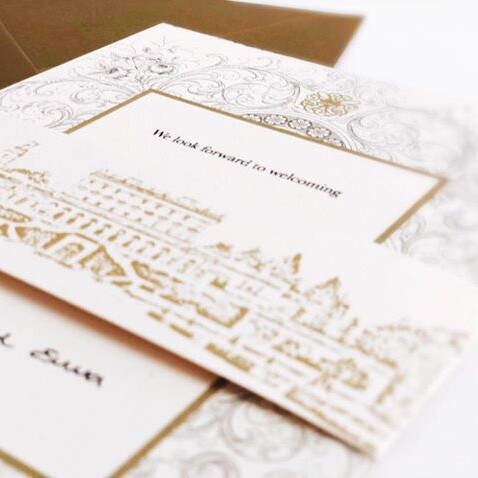 We look forward to welcoming